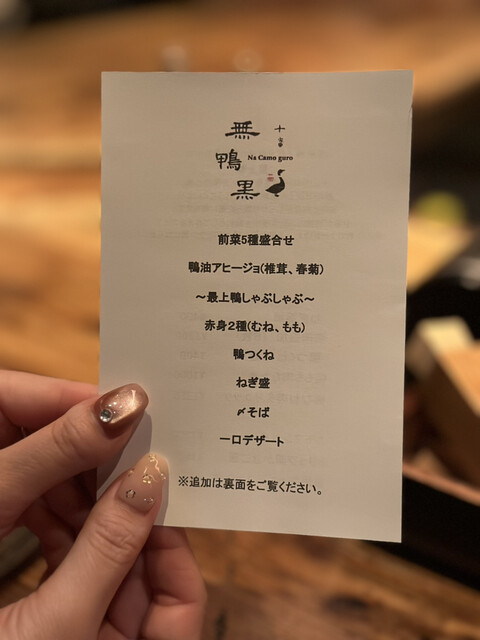 無
鴨
黒
十
Na Camo guro
前菜5種盛合せ
鴨油アヒージョ(椎茸、春菊)
～最上鴨しゃぶしゃぶ～
赤身2種(むね、もも)
鴨つくね
ねぎ盛
〆そば
一口デザート
※追加は裏面をご覧ください。